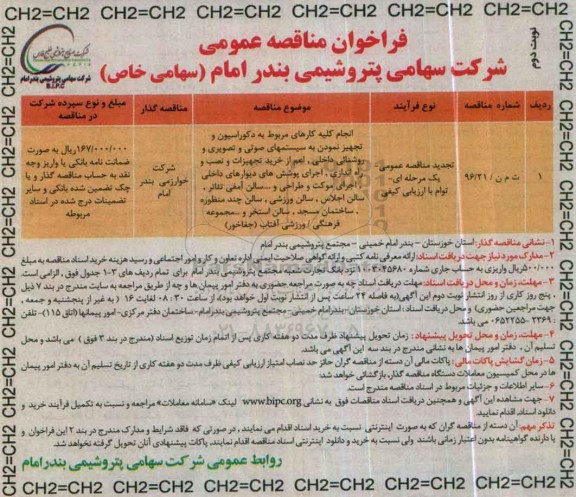 CH2=CH2 CH2=CH2 CH2=CH2 CH2=CH2 CH2=CH2 CH2=CH2 CH2=CH2
نوبت دوم
فراخوان مناقصه عمومی
شرکت سهامی پتروشیمی بندر امام (سهامی خاص)
شرکت سهامی پتروشیمی بندر امام
B.I.P.C
ردیف
شماره مناقصه
نوع فرآیند
موضوع مناقصه
مناقصه گذار
مبلغ و نوع سپرده شرکت در مناقصه
۱
ت م ن / ۹۶/۲۱
تجدید مناقصه عمومی یک مرحله ای- توام با ارزیابی کیفی
انجام کلیه کارهای مربوط به دکوراسیون و
تجهیز نمودن به سیستمهای صوتی و تصویری و
روشنائی داخلی، اعم از خرید تجهیزات و نصب و
راه اندازی، اجرای پوشش های دیوارهای داخلی
، اجرای موکت و طراحی و ...سالن آمفی تئاتر ،
سالن اجلاس ، سالن ورزشی ، سالن چند منظوره
، ساختمان مسجد ، سالن استخر و ...مجموعه
فرهنگی / ورزشی آفتاب (جفاخور)
شرکت خوارزمی بندر امام
۱۶۷/۰۰۰/۰۰۰ریال به صورت
ضمانت نامه بانکی یا واریز وجه
نقد به حساب مناقصه گذار و یا
چک تضمین شده بانکی و سایر
تضمینات درج شده در اسناد
مربوطه
۱-نشانی مناقصه گذار: استان خوزستان – بندر امام خمینی – مجتمع پتروشیمی بندر امام
۲-مدارک مورد نیاز جهت دریافت اسناد: ارائه معرفی نامه کتبی و ارائه گواهی صلاحیت ایمنی اداره تعاون و کار و امور اجتماعی و رسید هزینه خرید اسناد مناقصه به مبلغ
۵۰۰/۰۰۰ریال واریزی به حساب جاری شماره ۱۰۰۳۰۴۵۶۸۰ نزد بانک تجارت شعبه مجتمع پتروشیمی بندر امام برای تمام ردیف های ۲-۱ جدول فوق ، الزامی است.
۳-مهلت، زمان و محل دریافت اسناد: مهلت دریافت اسناد چه به صورت مراجعه حضوری به دفتر امور پیمان ها و چه از طریق مراجعه به سایت مندرج در بند ۷ ذیل
، پنج روز کاری از روز انتشار نوبت دوم این آگهی(به فاصله ۲۴ ساعت پس از انتشار نوبت اول خواهد بود)، از ساعت ۰۸:۳۰ لغایت ۱۶ ( به غیر از پنجشنبه و جمعه ،
جهت مراجعین حضوری) و محل دریافت اسناد : استان خوزستان-بندرامام خمینی-مجتمع پتروشیمی بندرامام- ساختمان دفتر مرکزی-امور پیمانها (اتاق ۱۱۵)- تلفن
۲۳۶۹ -۰۶۵۲۲۵۵ می باشد.
۴- مهلت، زمان و محل تحویل پیشنهاد : زمان تحویل پیشنهاد ظرف مدت دو هفته کاری پس از اتمام زمان توزیع اسناد (مندرج در بند ۳ فوق ) می باشد و محل
تسلیم آن ، دفتر امور پیمان ها به نشانی مندرج در بند سه این آگهی می باشد.
۵-زمان گشایش پاکات مالی : پاکات مالی آن دسته از مناقصه گران حائز حد نصاب امتیاز ارزیابی کیفی ظرف مدت دو هفته کاری از تاریخ تسلیم آن به دفتر امور پیمان
ها در محل کمیسیون معاملات دستگاه مناقصه گذار، بازگشائی خواهد شد.
۶- سایر اطلاعات و جزئیات مربوط در اسناد مناقصه مندرج است.
۷- جهت مشاهده این آگهی و همچنین دریافت اسناد مناقصات فوق به نشانی www.bipc.org لینک «سامانه معاملات» مراجعه و نسبت به تکمیل فرآیند خرید و
دانلود اسناد اقدام نمایید
تذکر مهم: آن دسته از مناقصه گران که به صورت اینترنتی نسبت به خرید اسناد اقدام می نمایند ، در صورتی که فاقد شرایط و مدارک مندرج در بند ۲ این فراخوان و
یا دارنده گواهینامه بدون اعتبار زمانی باشند ولی نسبت به خرید و دانلود اینترنتی اسناد مناقصه اقدام نمایند، پاکات پیشنهادی آنان تحویل گرفته نخواهد شد.
روابط عمومی شرکت سهامی پتروشیمی بندرامام
CH2=CH2 CH2=CH2 CH2=CH2 CH2=CH2 CH2=CH2 CH2=CH2 CH2=CH2